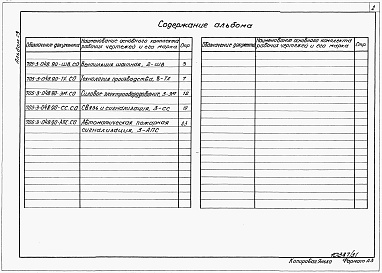 2
Альбом
Содержание альбома
Обозначение документа
Наименование основного комплекта рабочих чертежей и его марка
Стр.
Обозначение документа
Наименование основного комплекта рабочих чертежей и его марка
Стр.
705-3-048.90-ШВ.СО Вентиляция шахтная, 2-ШВ 3
705-3-048.90-ТХ.СО Технология производства, 3-ТХ 7
705-3-048.90-ЭМ.СО Силовое электрооборудование, 3-ЭМ 12
705-3-048.90-СС.СО Связь и сигнализация, 3-СС 19
705-3-048.90-АПС.СО Автоматическая пожарная
сигнализация, 3-АПС 23
Копировал
Формат А3